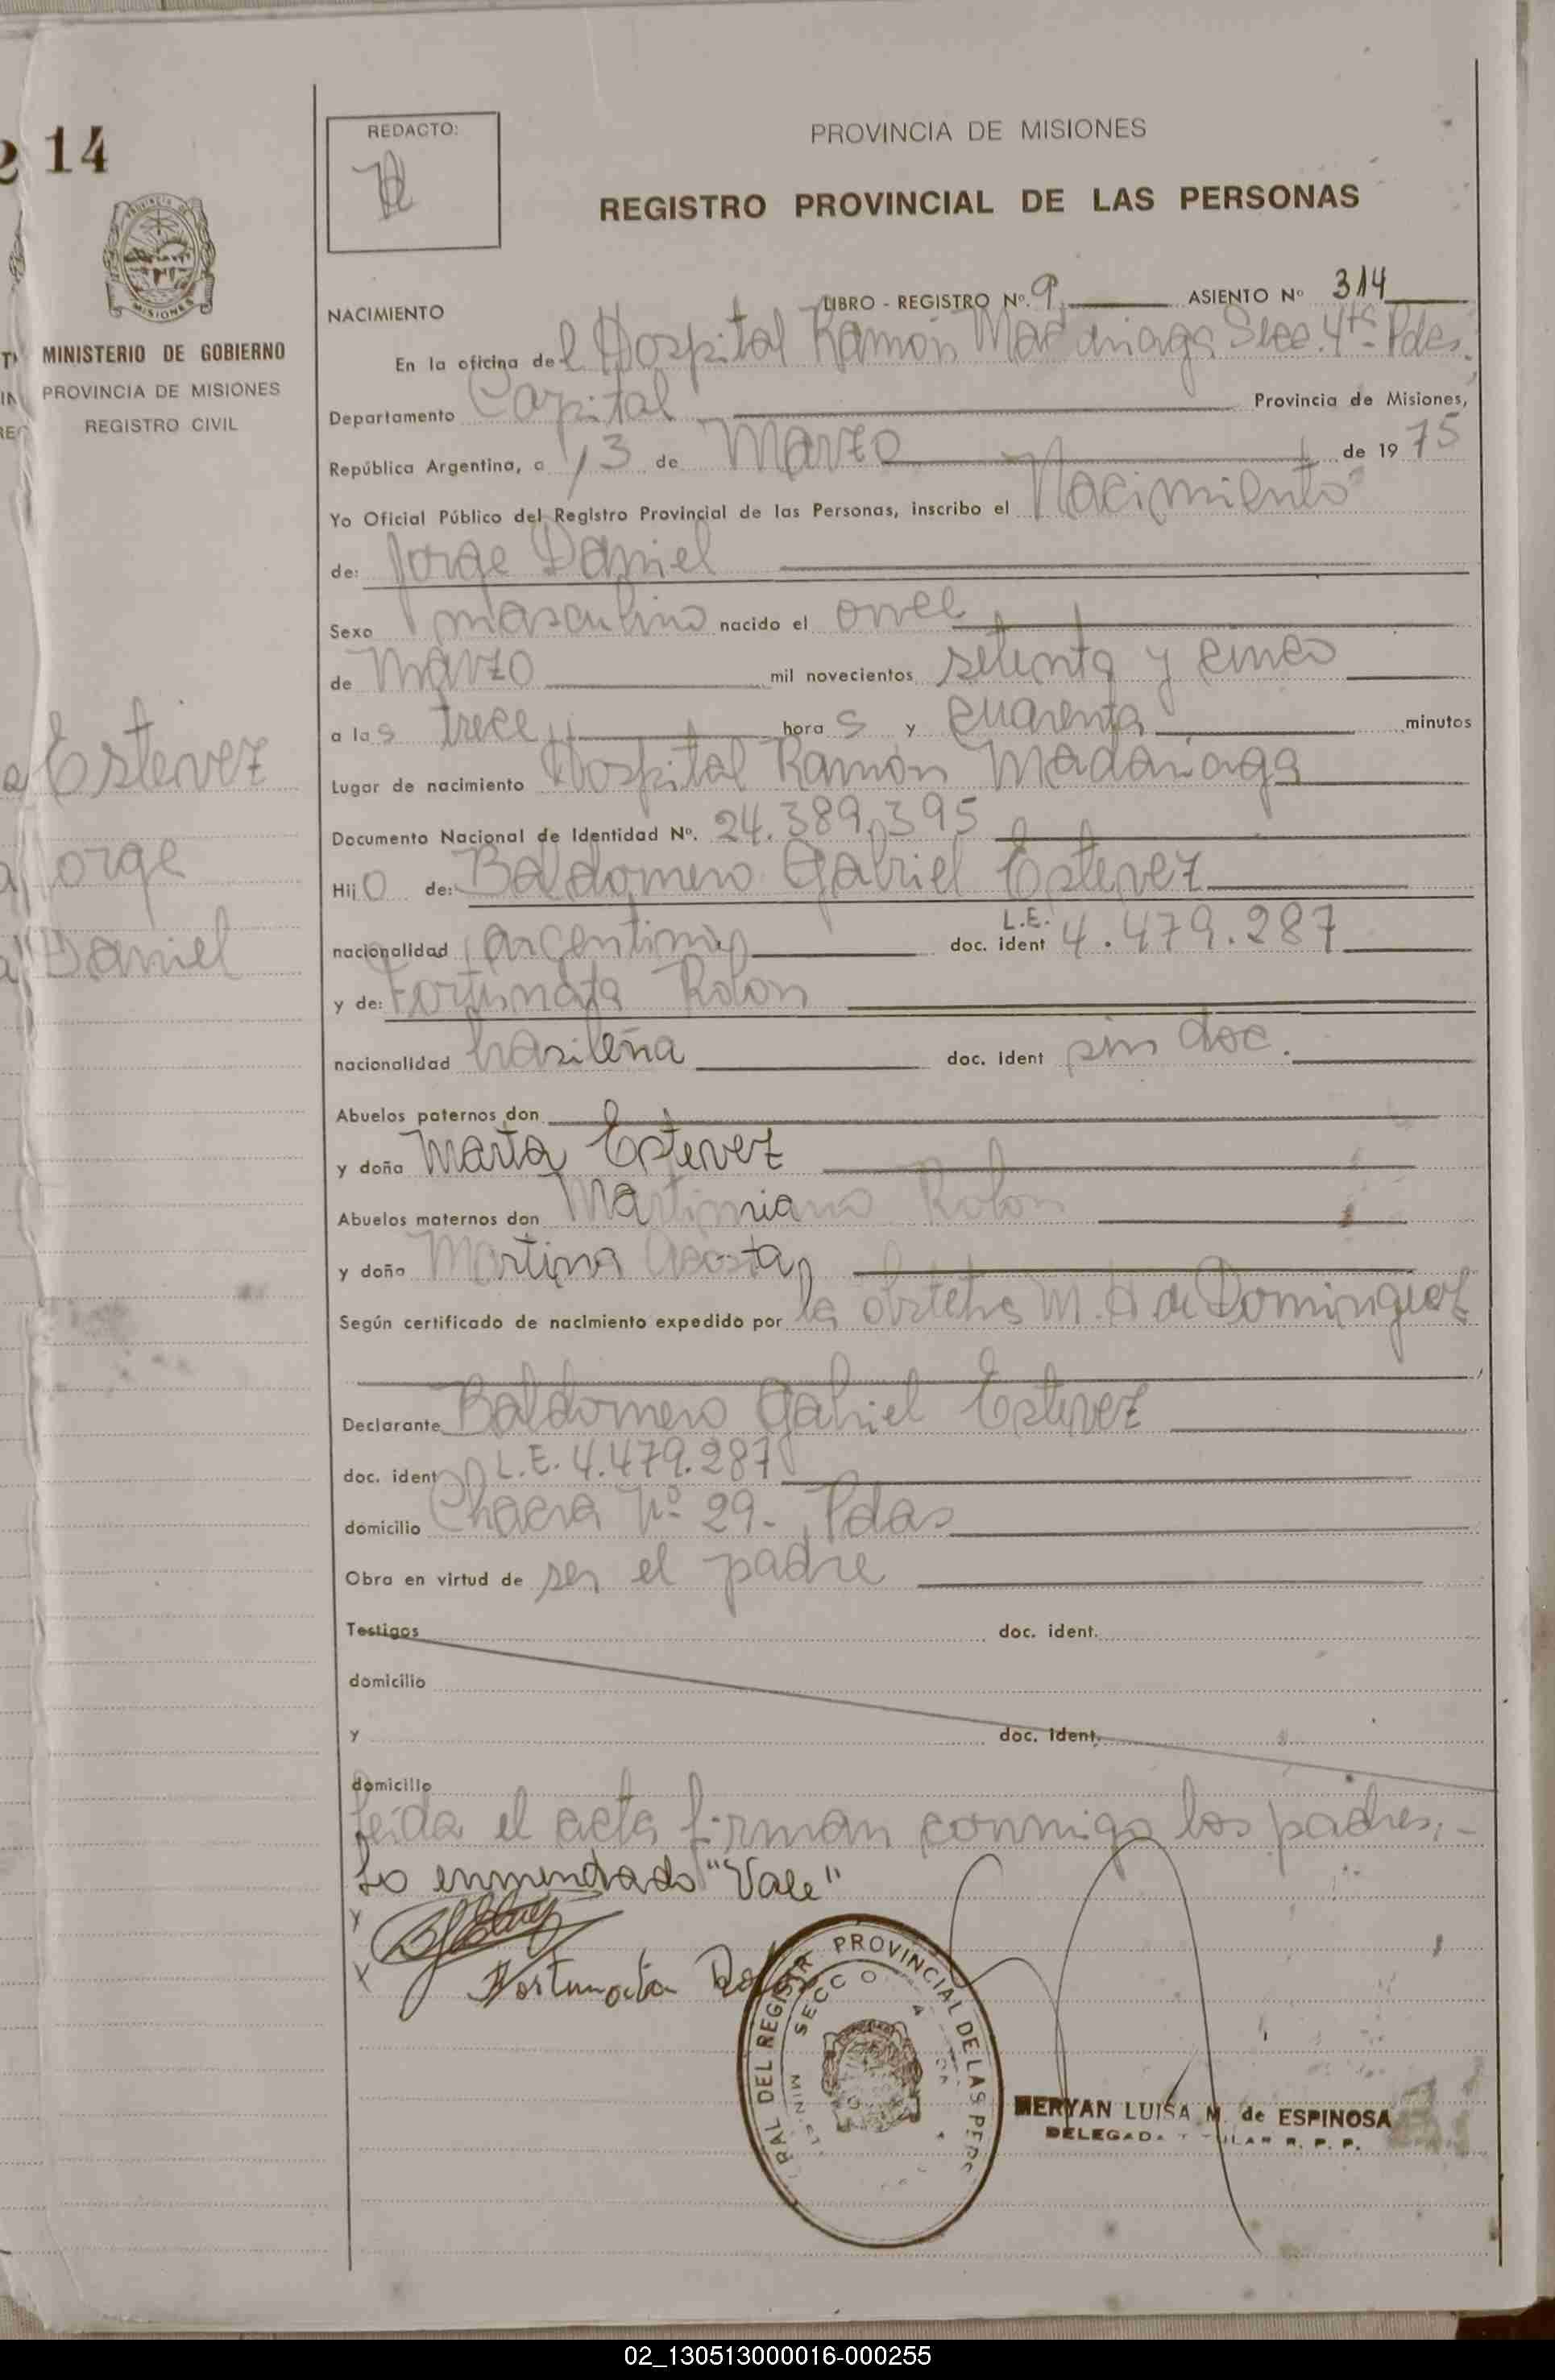 14
REDACTO:
PROVINCIA DE MISIONES
REGISTRO PROVINCIAL DE LAS PERSONAS
MINISTERIO DE GOBIERNO
PROVINCIA DE MISIONES
REGISTRO CIVIL
Estevez
Jorge
Daniel
NACIMIENTO
LIBRO - REGISTRO Nº. 9 ASIENTO Nº 314
En la oficina del Hospital Ramón Madariaga Secc. 4ta Pdas.
Departamento Capital Provincia de Misiones,
República Argentina, a 13 de Marzo de 1975
Yo Oficial Público del Registro Provincial de las Personas, inscribo el Nacimiento
de: Jorge Daniel
Sexo masculino nacido el once
de Marzo mil novecientos setenta y cinco
a las trece horas y cuarenta minutos
Lugar de nacimiento Hospital Ramón Madariaga
Documento Nacional de Identidad Nº. 24.389.395
Hijo de: Baldomero Gabriel Estevez
nacionalidad argentina doc. ident L.E. 4.479.287
y de: Fortunata Rolon
nacionalidad brasileña doc. ident sin doc.
Abuelos paternos don
y doña Marta Estevez
Abuelos maternos don Martimiano Rolon
y doña Martina Acosta
Según certificado de nacimiento expedido por la obstetra M. H de Dominguez
Declarante Baldomero Gabriel Estevez
doc. ident L.E. 4.479.287
domicilio Chacra Nº 29 - Pdas
Obra en virtud de ser el padre
Testigos doc. ident.
domicilio
y doc. ident.
domicilio
leída el acta firman conmigo los padres.-
Lo enmendado "Vale"
Fortunata Rolon
PROVINCIAL DE LAS PERS
RAL DEL REGISTR
SECC
MERYAN LUISA M. de ESPINOSA
DELEGADA TITULAR R. P. P.
02_130513000016-000255